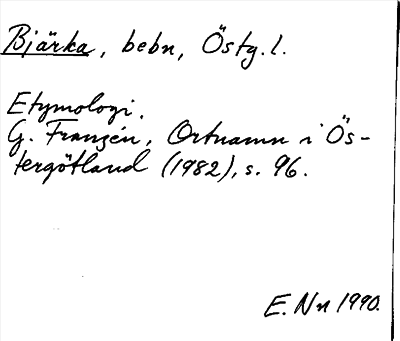 Bjärka, bebn, Östg.l.
Etymologi.
G. Franzén, Ortnamn i Ös-
tergötland (1982), s. 96.
E. Nn 1990.